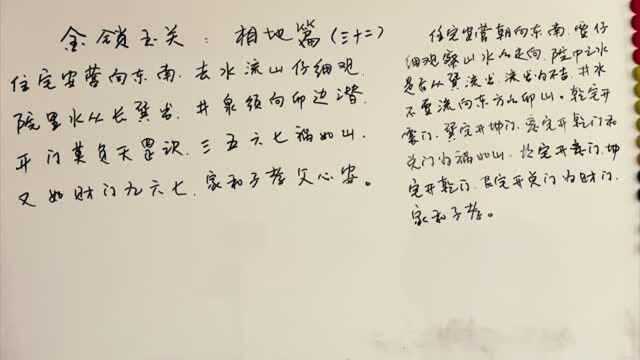 金锁玉关：相地篇（三十二）
住宅安营向东南．去水流山仔细观．
院里水从长巽出．井泉须向卯边潜．
开门莫负天罡诀．三五六七福如山．
又如财门九六七．家和子孝父心安。
住宅安营朝向东南．要仔
细观察山水的走向．院中之水
是否从巽流出．流出为吉．井水
不要流向东方的卯山。乾宅开
震门．巽宅开坤门．离宅开乾门和
兑门为福如山．坎宅开离门．坤
宅开乾门．艮宅开兑门为财门．
家和子孝。